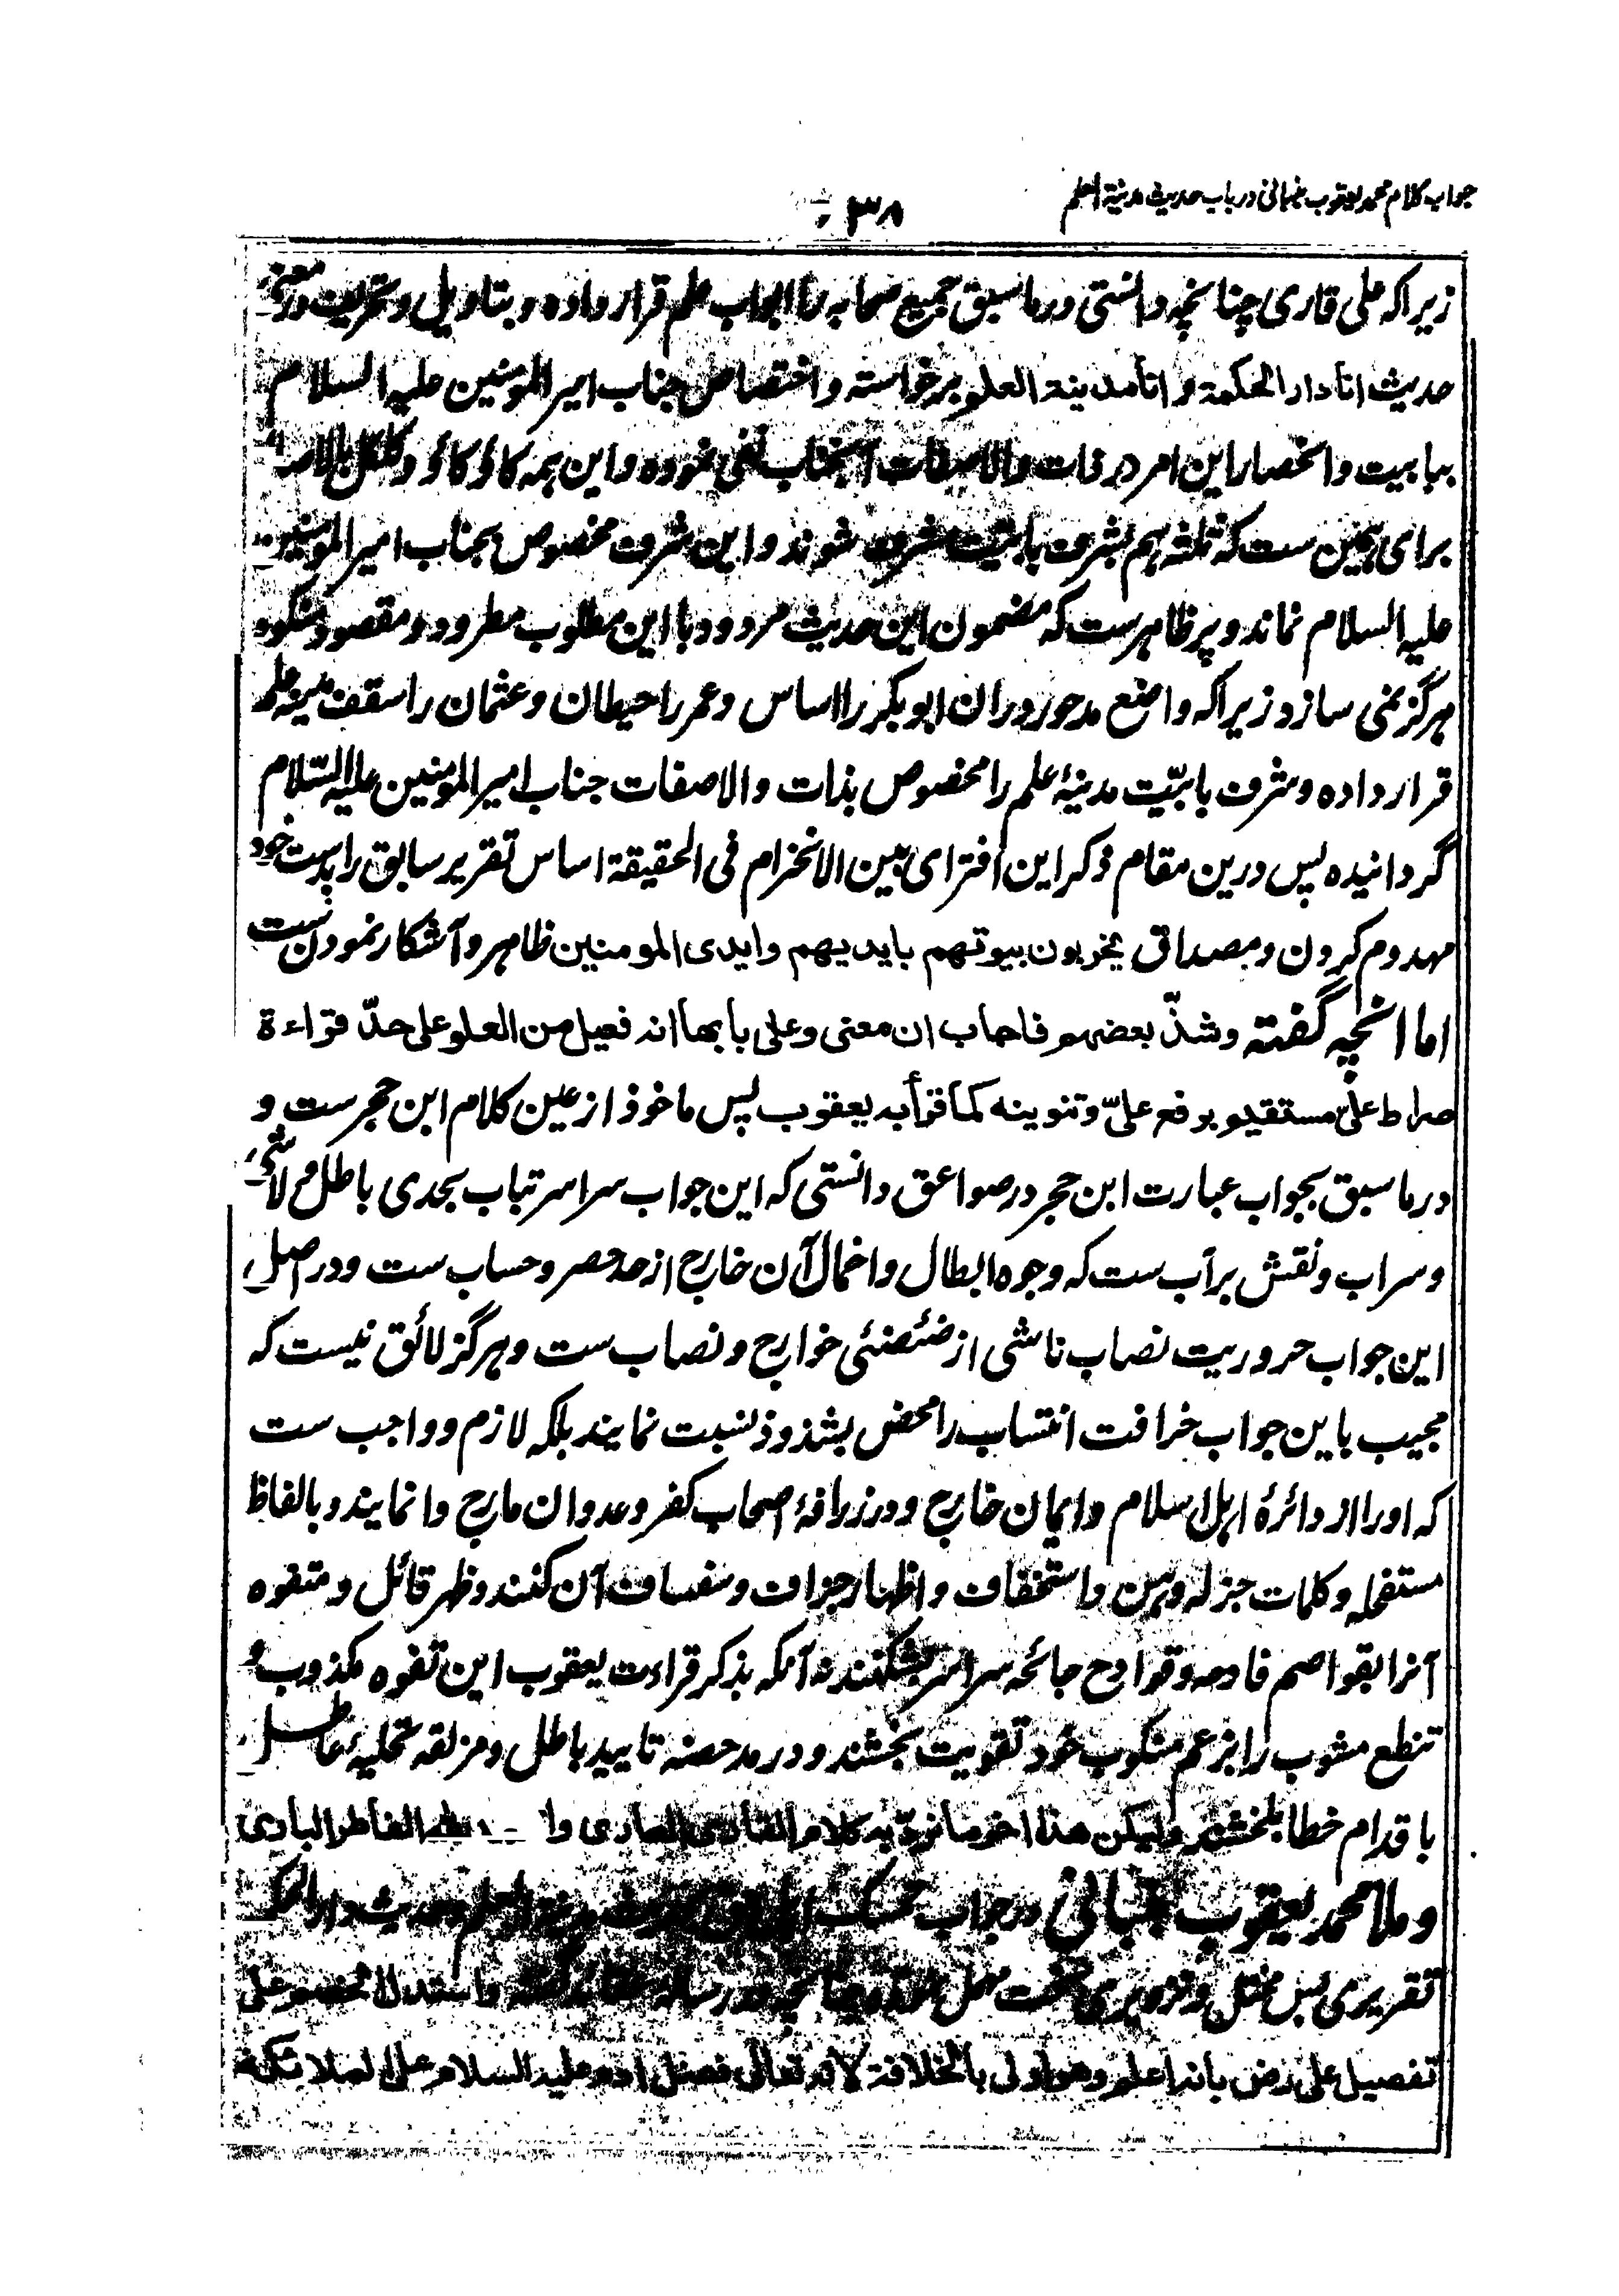 جواب کلام محمد یعقوب بنبانی در باب حدیث مدینة العلم
۳۰۸
زیراکه علی قاری چنانچه دانستی در ما سبق جمیع صحابه را ابواب علم قرار داده و بتاویل و تحریف در معنی
حدیث انا دار الحکمة و انا مدینة العلم برخواسته و اختصاص جناب امیر المومنین علیه السلام
ببابیت و انحصار این امر در ذات والا صفات آنجناب نفی نموده و این همه کاؤ کاؤ
برای همین ست که ثلثه هم بشرف بابیت مشرف شوند و این شرف مخصوص بجناب امیر المومنین
علیه السلام نماند و پر ظاهرست که مضمون این حدیث مردود با این مطلوب مطرود و مقصود منکود
هرگز نمی سازد زیراکه واضع مدحور در ان ابوبکر را اساس و عمر را حیطان و عثمان را سقف مدینه علم
قرار داده و شرف بابیّت مدینهٔ علم را مخصوص بذات والا صفات جناب امیر المومنین علیه السّلام
گردانیده پس درین مقام ذکر این افترای بین الانخرام فی الحقیقة اساس تقریر سابق را بدست خود
مهدوم کردن و مصداق یخربون بیوتهم بایدیهم و ایدی المومنین ظاهر و آشکار نمودن ست
اما انچه گفته وشذّ بعضهم فاجاب ان معنی وعلی بابها انه فعیل من العلو علی حدّ قراءة
صراط علیّ مستقیم برفع علیّ وتنوینه کما قرأ به یعقوب پس ماخوذ از عین کلام ابن حجرست و
در ما سبق بجواب عبارت ابن حجر در صواعق دانستی که این جواب سراسر تباب بحدی باطل و لاشیء
و سراب و نقش بر آب ست که وجوه ابطال و اخمال آن خارج از حد حصر و حساب ست و در اصل
این جواب حروریت نصاب ناشی از ضئضئی خوارج و نصاب ست و هرگز لائق نیست که
مجیب باین جواب خرافت انتساب را محض بشذوذ نسبت نمایند بلکه لازم و واجب ست
که او را از دائرهٔ اهل اسلام و ایمان خارج و در زرافهٔ اصحاب کفر و عدوان مارج وانمایند و بالفاظ
مستفحله و کلمات جزله وهن و استخفاف و اظهار جزاف و سفساف آن کنند و ظهر قائل و متفوه
آنرا بقواصم فادحه و قوادح جائحه سراسر بشکنند نه آنکه بذکر قراءت یعقوب این تفوه مکذوب و
تنطع مشوب را بزعم منکوب خود تقویت بخشند و در مدحضه تایید باطل و مزلقه تحلیهٔ عاطل
باقدام خطا بلخشند ولیکن هذا اخر ما نردّ به کلام القاری العاری الفاطر الباری
و ملا محمد یعقوب بنبانی در جواب تمسک
تقریری بس مختل در رساله عقائد گفته و استدل الخصوم علی
تفضیل علی رض بانه اعلم وهو اولی بالخلافة لانه تعالی فضل ادم علیه السلام علی الملائکة